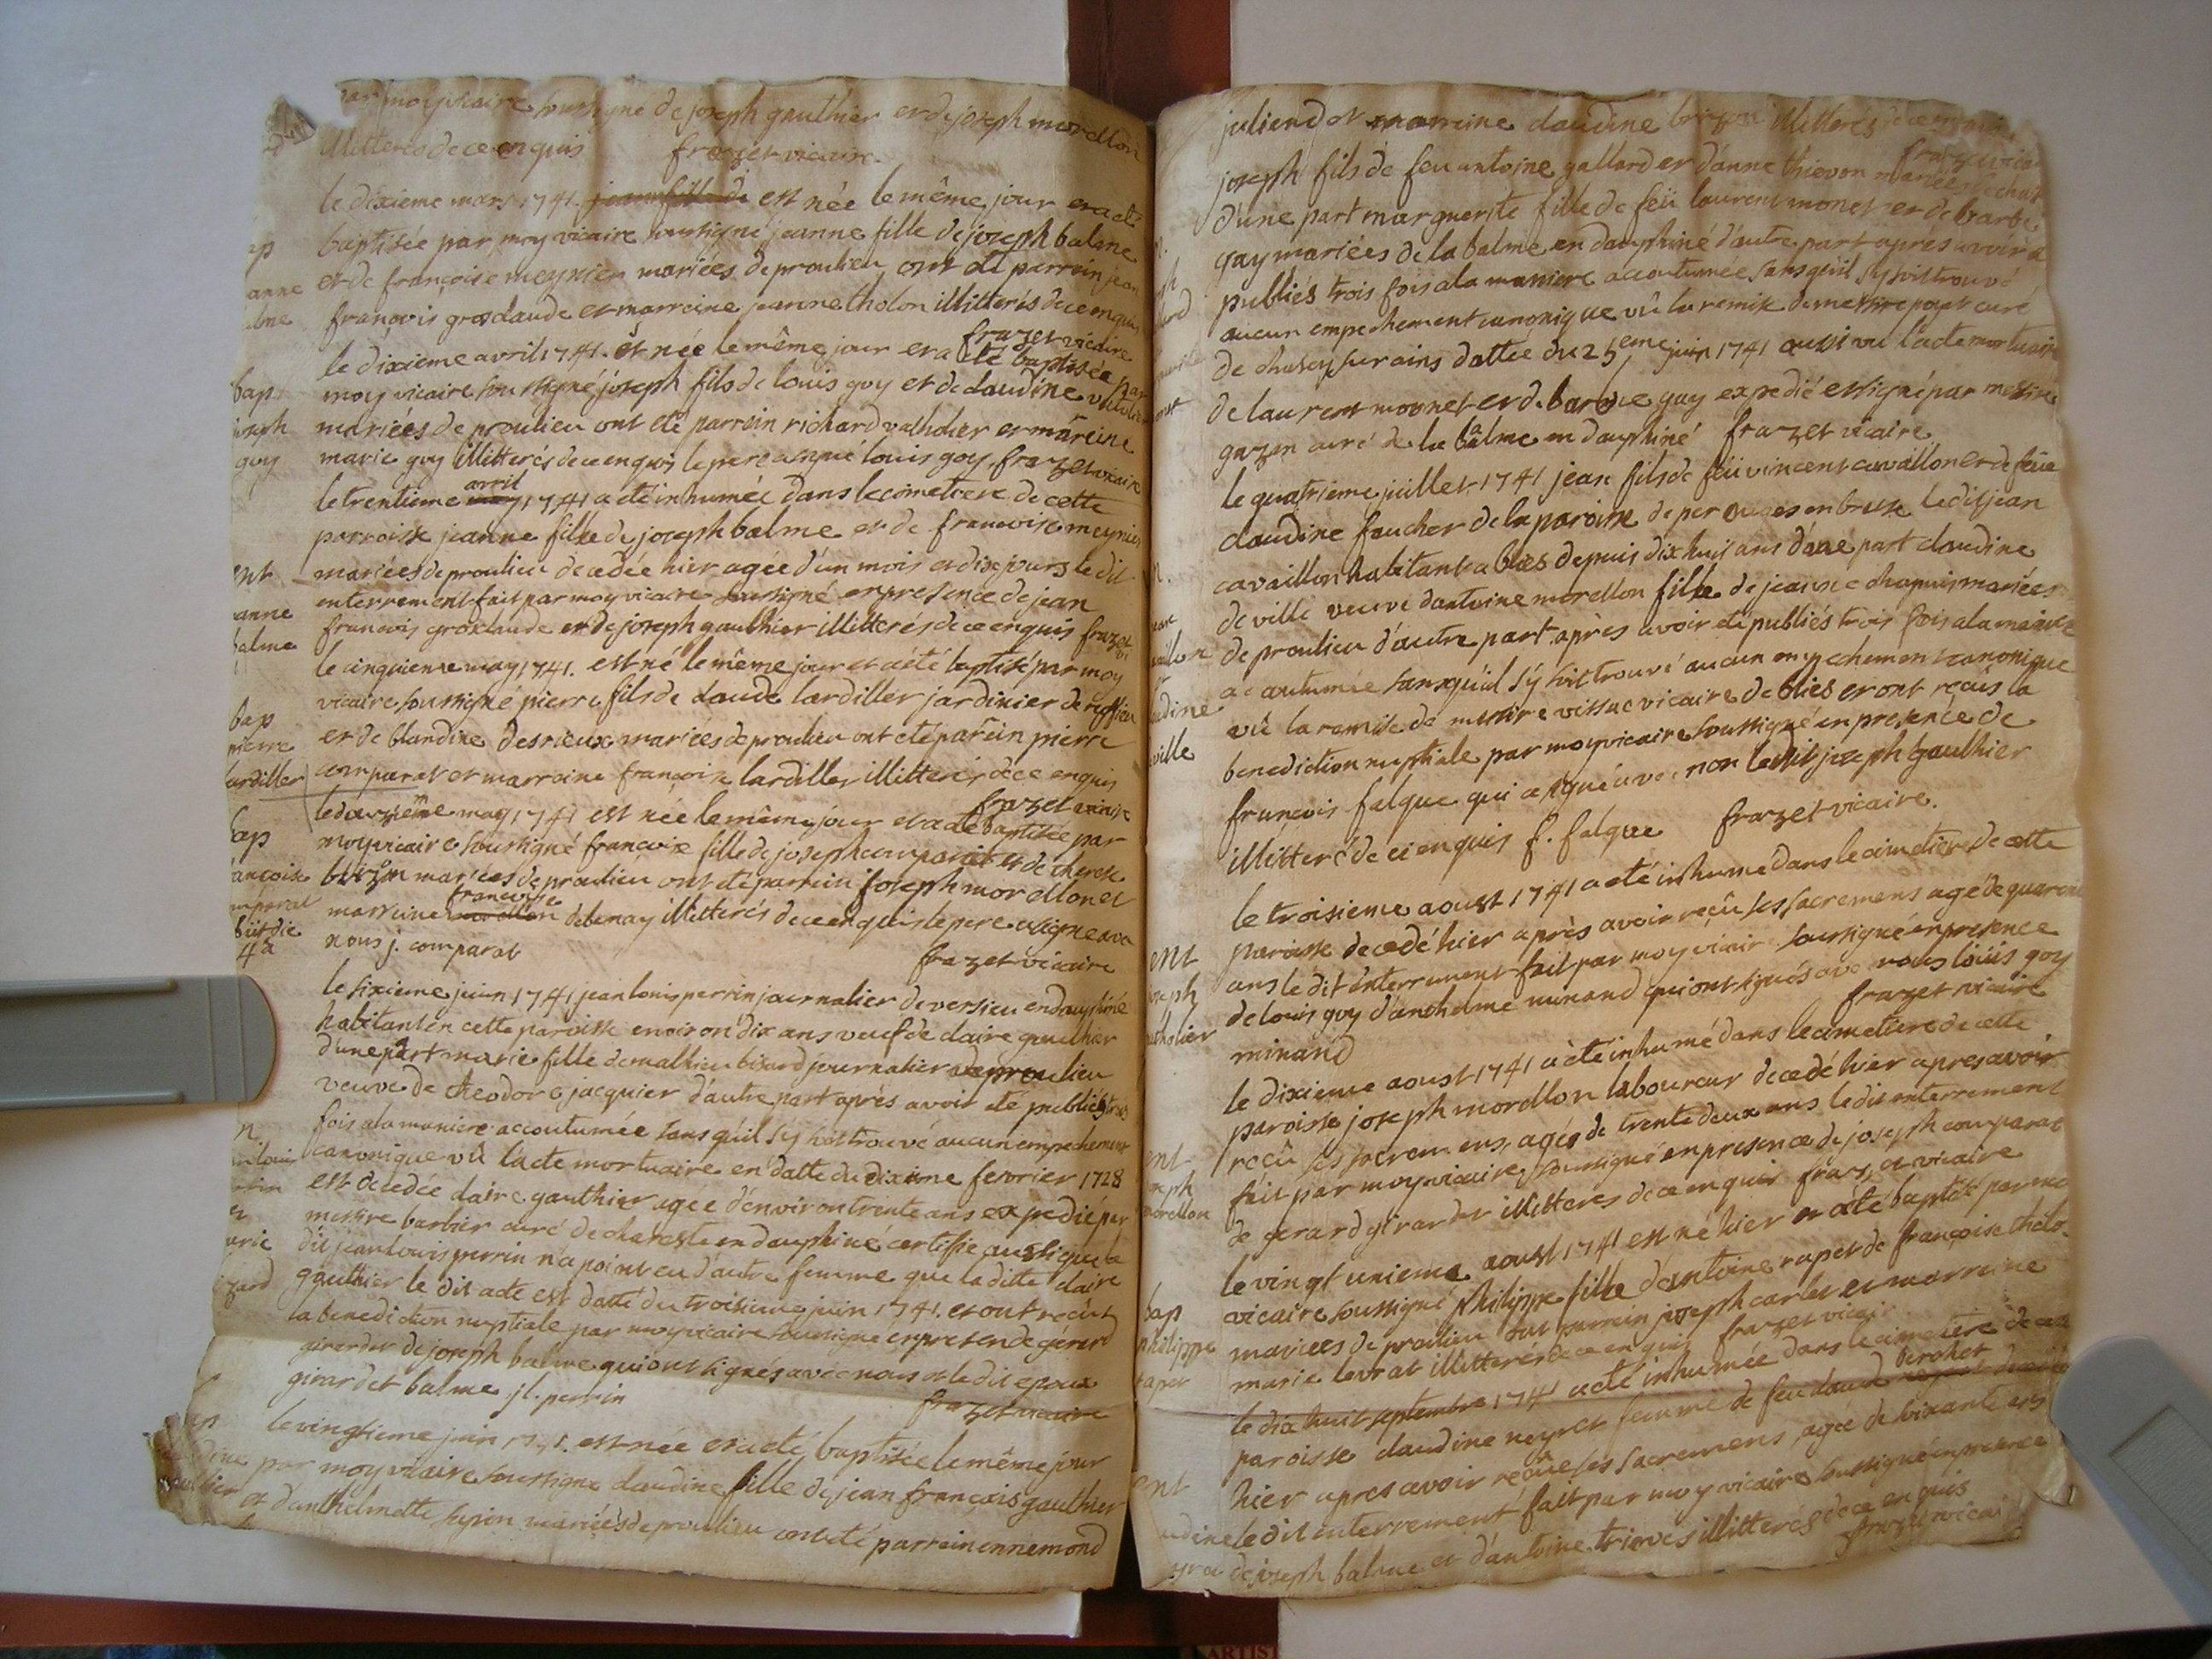 par moy vicaire soussigné de joseph gauthier et de joseph morellon
illitterés de ce enquis frazet vicaire
le dixieme mars 1741. est née le même jour et a eté
baptisée par moy vicaire soussigné jeanne fille de joseph balme
et de françoise meynier mariées de proulieu ont eté parrein jean
françois grosclaude et marreine jeanne tholon illitterés de ce enquis
frazet vicaire
le dixieme avril 1741. est née le même jour et a eté baptisée par
moy vicaire soussigné joseph fils de louis goy et de claudine
mariées de proulieu ont eté parrein richard vatholier et mareine
marie goy illitterés de ce enquis le pere a signé louis goy. frazet vicaire
le trentieme avril 1741 a eté inhumée dans le cimetiere de cette
parroisse jeanne fille de joseph balme et de francoise meynier
mariées de proulieu decedée hier agée d'un mois et dix jours le dit
enterrement fait par moy vicaire soussigné en presence de jean
francois grosclaude et de joseph gauthier illitterés de ce enquis frazet vi
le cinquieme may 1741. est né le même jour et a eté baptisé par moy
vicaire soussigné pierre fils de claude lardiller jardinier de
et de blandine desrieux mariées de proulieu ont eté parein pierre
comparat et marreine françoise lardiller illitterés de ce enquis
frazet vicaire
le may 1741 est née le même jour et a eté baptisée par
moy vicaire soussigné francoise fille de joseph comparat et de therese
brizon mariées de proulieu ont eté parrein joseph morellon et
marreine francoise debenay illitterés de ce enquis le pere a signé avec
nous j. comparat frazet vicaire
le sixieme juin 1741 jean louis perrin journalier de versieu en dauphiné
habitant en cette paroisse environ dix ans veuf de claire gauthier
d'une part marie fille de mathieu bizard journalier de proulieu
veuve de theodore jacquier d'autre part après avoir eté publiés trois
fois a la maniere accoutumée sans qu'il s'y soit trouvé aucun empechement
canonique vû l'acte mortuaire en datte du dixieme fevrier 1728
est decedée claire gauthier agee d'environ trente ans expedié par
messire barbier curé de charette en dauphiné certifie aussi que le
dit jean louis perrin n'a point eu d'autre femme que la ditte claire
gauthier le dit acte est datté du troisieme juin 1741. et ont reçût
la benediction nuptiale par moy vicaire soussigné en presen de gerard
girardet de joseph balme qui ont signés avec nous et le dit epoux
girardet balme jl. perrin frazet vicaire
le vingtieme juin 1741. est née et a eté baptisée le même jour
par moy vicaire soussigné claudine fille de jean françois gauthier
et d'anthelmette sepin mariées de proulieu ont eté parrein ennemond
bap
joseph
goy
bap
pierre
lardiller
bap
juliend et marreine claudine brizon illitterés de ce enquis
frazet vicai
joseph fils de feu antoine gallard et d'anne thievon mariées de
d'une part marguerite fille de feü laurent monet et de barbe
gay mariées de la balme en dauphiné d'autre part aprés avoir
publiés trois fois a la maniere accoutumée sans qu'il s'y soit trouvé
aucun empechement canonique vû la remise de messire curé
de chasey sur ains dattée du 25eme juin 1741 aussi vu l'acte mortuaire
de laurent monnet et de barbe gay expedié et signé par messire
gazen curé de la bâlme en dauphiné frazet vicaire
le quatrieme juillet 1741 jean fils de feü vincent cavaillon et de feüe
claudine faucher de la paroisse de perouges en bresse le dit jean
cavaillon habitant a blies depuis dix huit ans d'une part claudine
deville veuve d'antoine morellon fille de jeanne chapuis mariées
de proulieu d'autre part après avoir eté publiés trois fois a la maniere
accoutumée sans qu'il s'y soit trouvé aucun empechement canonique
vû la remise de messire vissac vicaire de blies et ont reçus la
benediction nuptiale par moy vicaire soussigné en presence de
francois falque qui a signé avec non le dit joseph gauthier
illitteré de ce enquis f. falque frazet vicaire.
le troisieme aoust 1741 a eté inhumé dans le cimetiere de cette
paroisse decedé hier après avoir reçû ses sacremens agé de quarente
ans le dit enterrement fait par moy vicair soussigné en presence
de louis goy d'anthelme minand qui ont signés avec nous loüis goy
minand frazet vicaire
le dixieme aoust 1741 a eté inhumé dans le cimetiere de cette
paroisse joseph morellon laboureur decedé hier apres avoir
reçû ses sacremens, agés de trente deux ans le dit enterrement
fait par moy vicaire soussigné en presence de joseph comparat
de gerard girardet illitterés de ce enquis frazet vicaire
le vingt unieme aoust 1741 est né hier et a eté baptisé par moi
vicaire soussigné philippe fille d'antoine rapet de françoise tholo
mariees de proulieu ont parrein joseph carlet et marreine
marie levrat illitterés de ce enquis frazet vicair
le dix huit septembre 1741 a eté inhumée dans le cimetiere de cette
paroisse claudine neyret femme de feu claude berchet decedée
hier apres avoir reçûe ses sacremens, agée de soixante ans
le dit enterrement fait par moy vicaire soussigné en presence
de joseph balme et d'antoine trieves illitterés de ce enquis
frazet vicai
bap
philippe
rapet